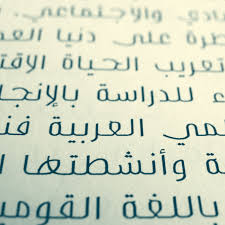 ـادي والاجتماعي.
ـطرة على دنيا العمـ
تعريب الحياة الاقتـ
ء للدراسة بالإنجـ
ـمي العربية فنـ
ـة وأنشطتها ا
باللغة القومـ